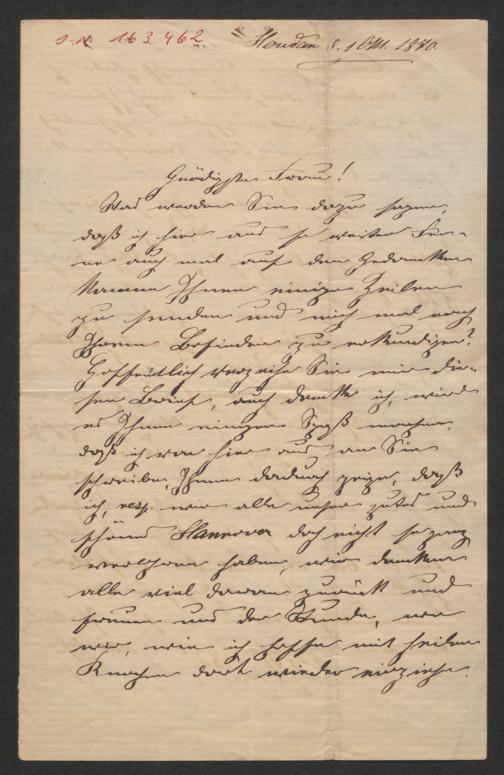 J.N. 163.462
Houdan d. 1 Okt. 1870.
Gnädigste Frau!
Was werden Sie dazu sagen,
daß ich hier aus so weiter Fer-
ne auch mal auf den Gedanken
komme Ihnen einige Zeilen
zu senden und mich mal nach
Ihrem Befinden zu erkundigen?
Hoffentlich verzeihe Sie mir die-
sen Brief, auch denke ich, wird
es Ihnen einigen Spaß machen,
daß ich von hier aus an Sie
schreibe, Ihnen dadurch zeige, daß
ich, resp. wir alle unser gutes und
schönes Hannover doch nicht so ganz
vergessen haben, wir denken
alle viel daran zurück und
freuen uns der Stunde, wo
wir, wie ich hoffe mit heilen
Knochen dort wieder einziehe.